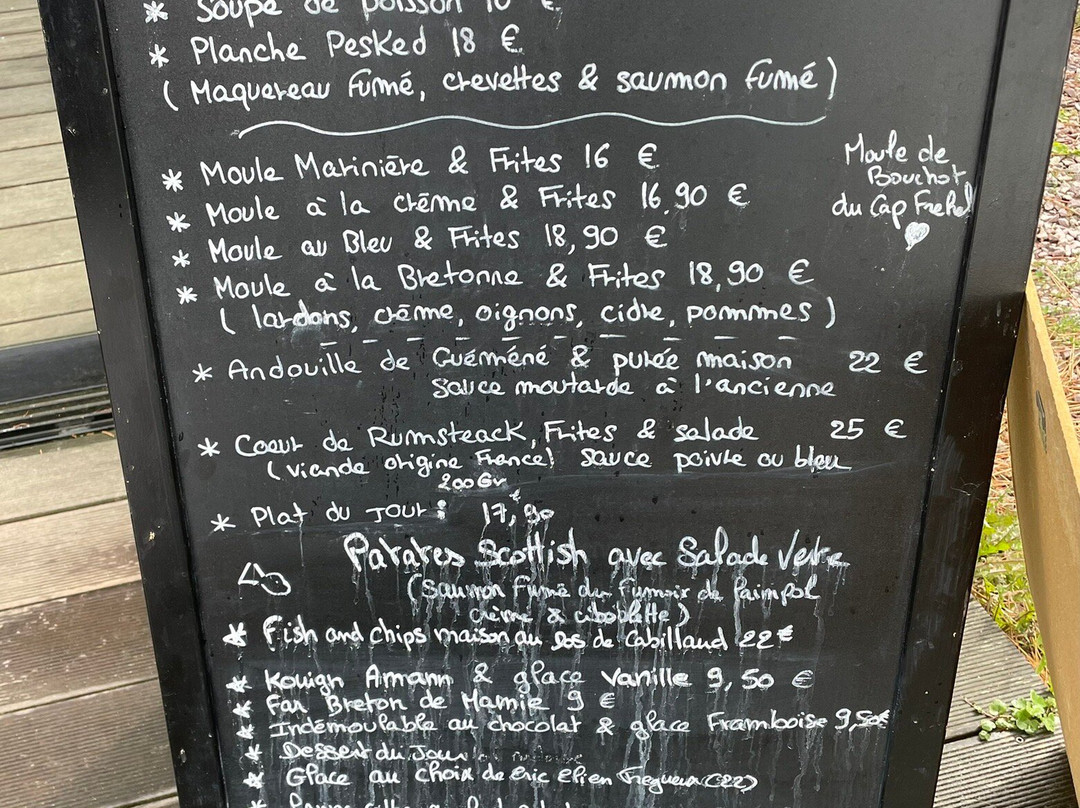 * Soupe de poisson 10 €
* Planche Pesked 18 €
( Maquereau fumé, crevettes & saumon fumé )
* Moule Marinière & Frites 16 €
* Moule à la crème & Frites 16,90 €
* Moule au Bleu & Frites 18,90 €
* Moule à la Bretonne & Frites 18,90 €
( lardons, crème, oignons, cidre, pommes )
Moule de
Bouchot
du Cap Frehel
* Andouille de Guéméné & purée maison 22 €
Sauce moutarde à l'ancienne
* Coeur de Rumsteack, Frites & salade 25 €
(viande origine France) sauce poivre ou bleu
200Gr
* Plat du jour : 17,90 €
Patates Scottish avec Salade Verte
(Saumon Fumé du Fumoir de Paimpol
crème & ciboulette)
* Fish and chips maison au dos de Cabillaud 22 €
* Kouign Amann & glace Vanille 9,50 €
* Far Breton de Mamie 9 €
* Indémoulable au chocolat & glace Framboise 9,50€
* Dessert du Jour
* Glace au choix de Eric Elien Tregueux (22)